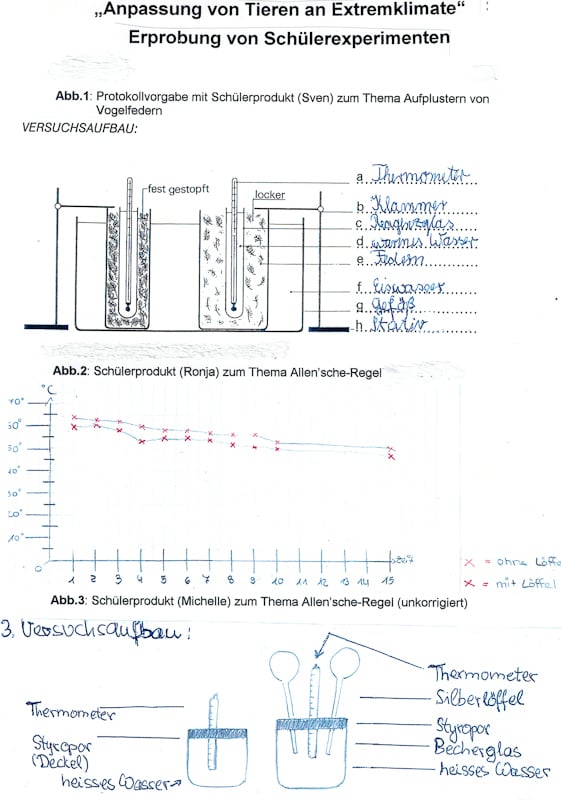 „Anpassung von Tieren an Extremklimate“
Erprobung von Schülerexperimenten
Abb.1: Protokollvorgabe mit Schülerprodukt (Sven) zum Thema Aufplustern von
Vogelfedern
VERSUCHSAUFBAU:
fest gestopft
locker
a Thermometer
b Klammer
c Reagenzglas
d warmes Wasser
e Federn
f Eiswasser
g Gefäß
h Stativ
Abb.2: Schülerprodukt (Ronja) zum Thema Allen'sche-Regel
°C
70°
60°
50°
40°
30°
20°
10°
0
1 2 3 4 5 6 7 8 9 10 11 12 13 14 15
Zeit
x = ohne Löffel
x = mit Löffel
Abb.3: Schülerprodukt (Michelle) zum Thema Allen'sche-Regel (unkorrigiert)
3. Versuchsaufbau:
Thermometer
Styropor
(Deckel)
heisses Wasser
Thermometer
Silberlöffel
Styropor
Becherglas
heisses Wasser